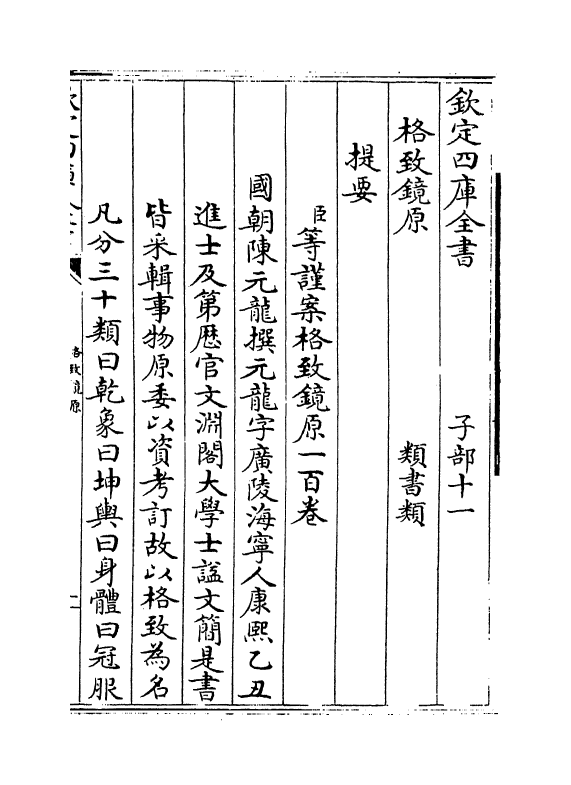 欽定四庫全書　子部十一
格致鏡原　類書類
提要
臣等謹案格致鏡原一百卷
國朝陳元龍撰元龍字廣陵海寧人康熙乙丑
進士及第歴官文淵閣大學士諡文簡是書
皆采輯事物原委以資考訂故以格致為名
凡分三十類曰乾象曰坤輿曰身體曰冠服
格致鏡原